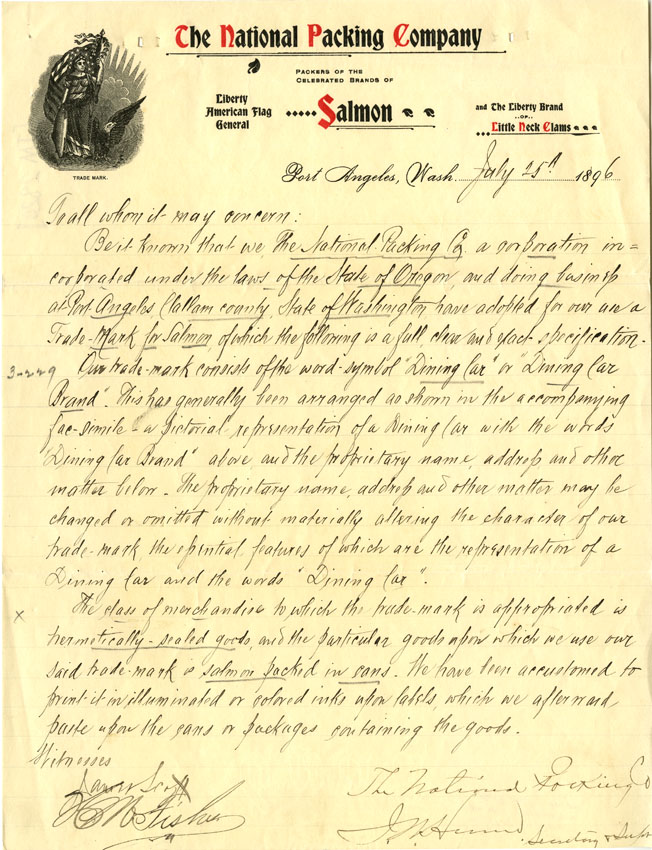 The National Packing Company
PACKERS OF THE
CELEBRATED BRANDS OF
Liberty
American Flag
General
Salmon
and The Liberty Brand
..OF..
Little Neck Clams
TRADE MARK.
Port Angeles, Wash. July 25th 1896
To all whom it may concern:
Be it known that we, The National Packing Co, a corporation in=
corporated under the laws of the State of Oregon, and doing business
at Port Angeles Clallam county, State of Washington have adopted for our use a
Trade-Mark for Salmon of which the following is a full clear and exact specification.
3-229
Our trade-mark consists of the word-symbol "Dining Car" or "Dining Car
Brand". This has generally been arranged as shown in the accompanying
fac-simile - a pictorial representation of a Dining Car with the words
"Dining Car Brand" above and the proprietary name, address and other
matter below. The proprietary name, address and other matter may be
changed or omitted without materially altering the character of our
trade-mark the essential features of which are the representation of a
Dining Car and the words "Dining Car".
x
The class of merchandise to which the trade-mark is appropriated is
hermetically-sealed goods, and the particular goods upon which we use our
said trade-mark is salmon packed in cans. We have been accustomed to
print it in illuminated or colored inks upon labels which we afterward
paste upon the cans or packages containing the goods.
Witnesses
Fisher
The National Packing Co
Secretary & Supt